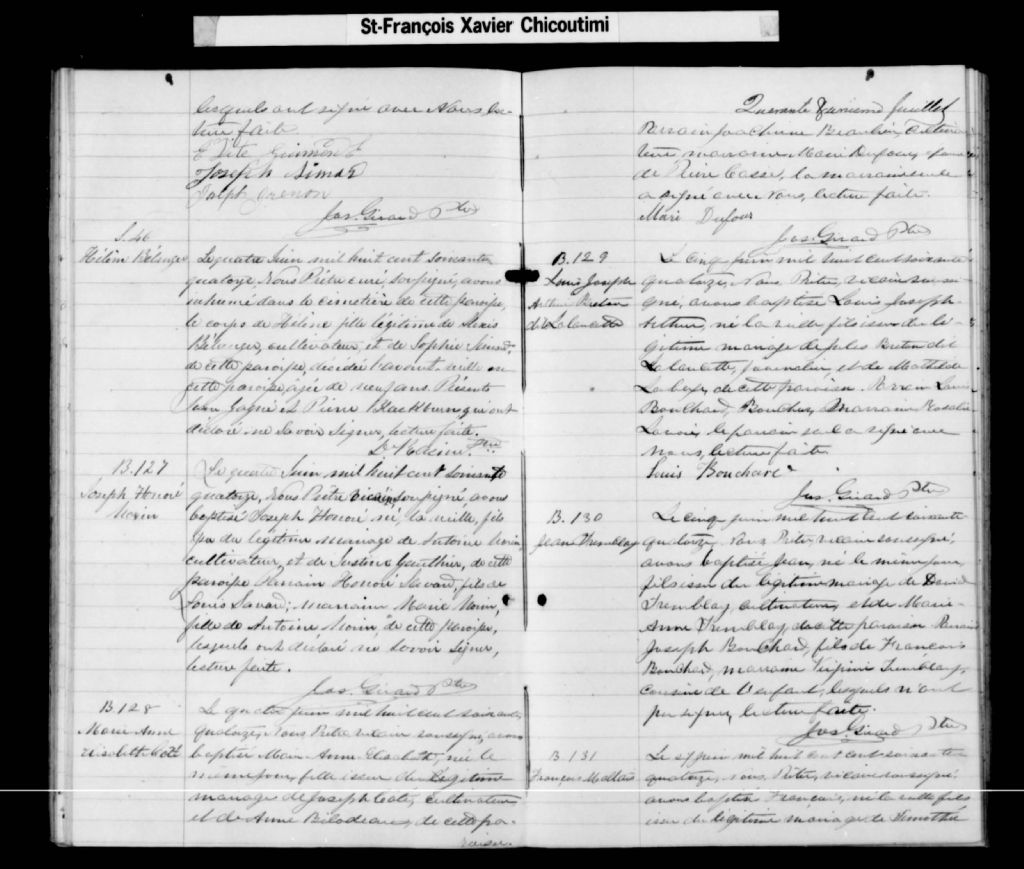 St-François Xavier Chicoutimi
lesquels ont signé avec Nous lec-
ture faite.
Joseph Simard
Jos. Girard Ptre
S. 46
Hélène Bélanger
Le quatre Juin mil huit cent soixante
quatorze Nous Prêtre curé, soussigné, avons
inhumé dans le cimetière de cette paroisse,
le corps de Hélène fille légitime de Alexis
Bélanger, cultivateur, et de Sophie Simard,
de cette paroisse, décédée l'avant-veille en
cette paroisse, agée de neuf ans. Présents
Jean Gagné et Pierre Blackburn qui ont
déclaré ne savoir signer, lecture faite.
Ptre
B. 127
Joseph Honoré
Morin
Le quatre Juin mil huit cent soixante
quatorze, Nous Prêtre vicaire soussigné avons
baptisé Joseph Honoré né, la veille, fils
issu du légitime mariage de Antoine Morin,
cultivateur, et de Justine Gauthier, de cette
paroisse Parrain Honoré Savard, fils de
Louis Savard; Marraine Marie Morin,
fille de Antoine Morin, de cette paroisse,
lesquels ont déclaré ne savoir signer,
lecture faite.
Jos. Girard Ptre
B 128
Marie Anne
Elisabeth Coté
Le quatre juin mil huit cent soixante
quatorze, Nous Prêtre vicaire soussigné, avons
baptisé Marie Anne Elisabeth, née le
même jour, fille issue du légitime
mariage de Joseph Coté, cultivateur
et de Anne Bilodeau, de cette pa-
roisse.
Quarante &unième feuillet
Parrain Beaulieu, cultiva-
teur, marraine Marie Dufour, épouse
de Pierre Casse, la marraine seule
a signé avec nous, lecture faite.
Marie Dufour
Jos. Girard Ptre
B. 129
Louis Joseph
Arthur Breton
dit Lalancette
Le cinq juin mil huit cent soixante
quatorze, Nous Prêtre, vicaire sous-
signé, avons baptisé Louis Joseph
Arthur, né la veille fils issu du lé-
gitime mariage de Jules Breton dit
Lalancette, journalier et de Mathilde
de cette paroisse. Parrain Louis
Bouchard, Boucher, Marraine Rosalie
Lavoie, le parrain seul a signé avec
nous, lecture faite
Louis Bouchard
Jos. Girard Ptre
B. 130
Jean Tremblay
Le cinq juin mil huit cent soixante
quatorze, Nous Prêtre, vicaire soussigné,
avons baptisé Jean, né le même jour,
fils issu du légitime mariage de David
Tremblay, cultivateur, et de Marie-
Anne Tremblay, de cette paroisse Parrain
Joseph Bouchard, fils de François
Bouchard, marraine Virginie Tremblay,
cousine de l'enfant, lesquels n'ont
pu signer, lecture faite.
Jos. Girard Ptre
B. 131
François Maltais
Le six juin mil huit cent soixante
quatorze, nous, Prêtre, vicaire soussigné,
avons baptisé François, né la veille fils
issu du légitime mariage de Timothée